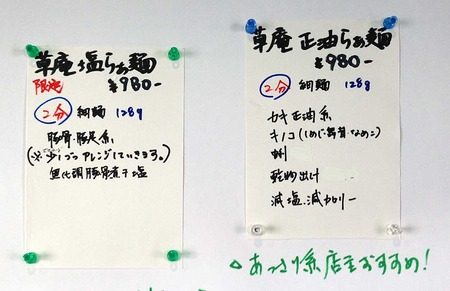 草庵 塩らぁ麺
限定 ¥980-
2分 細麺 128g
豚骨・豚足系
(※少しづつアレンジしていきます。)
無化調豚骨煮干塩
草庵 正油らぁ麺
¥980-
2分 細麺 128g
カキ正油系
キノコ(しめじ・舞茸・なめこ)
乾物出汁
減塩.減カロリー
△あっさり系店主おすすめ!